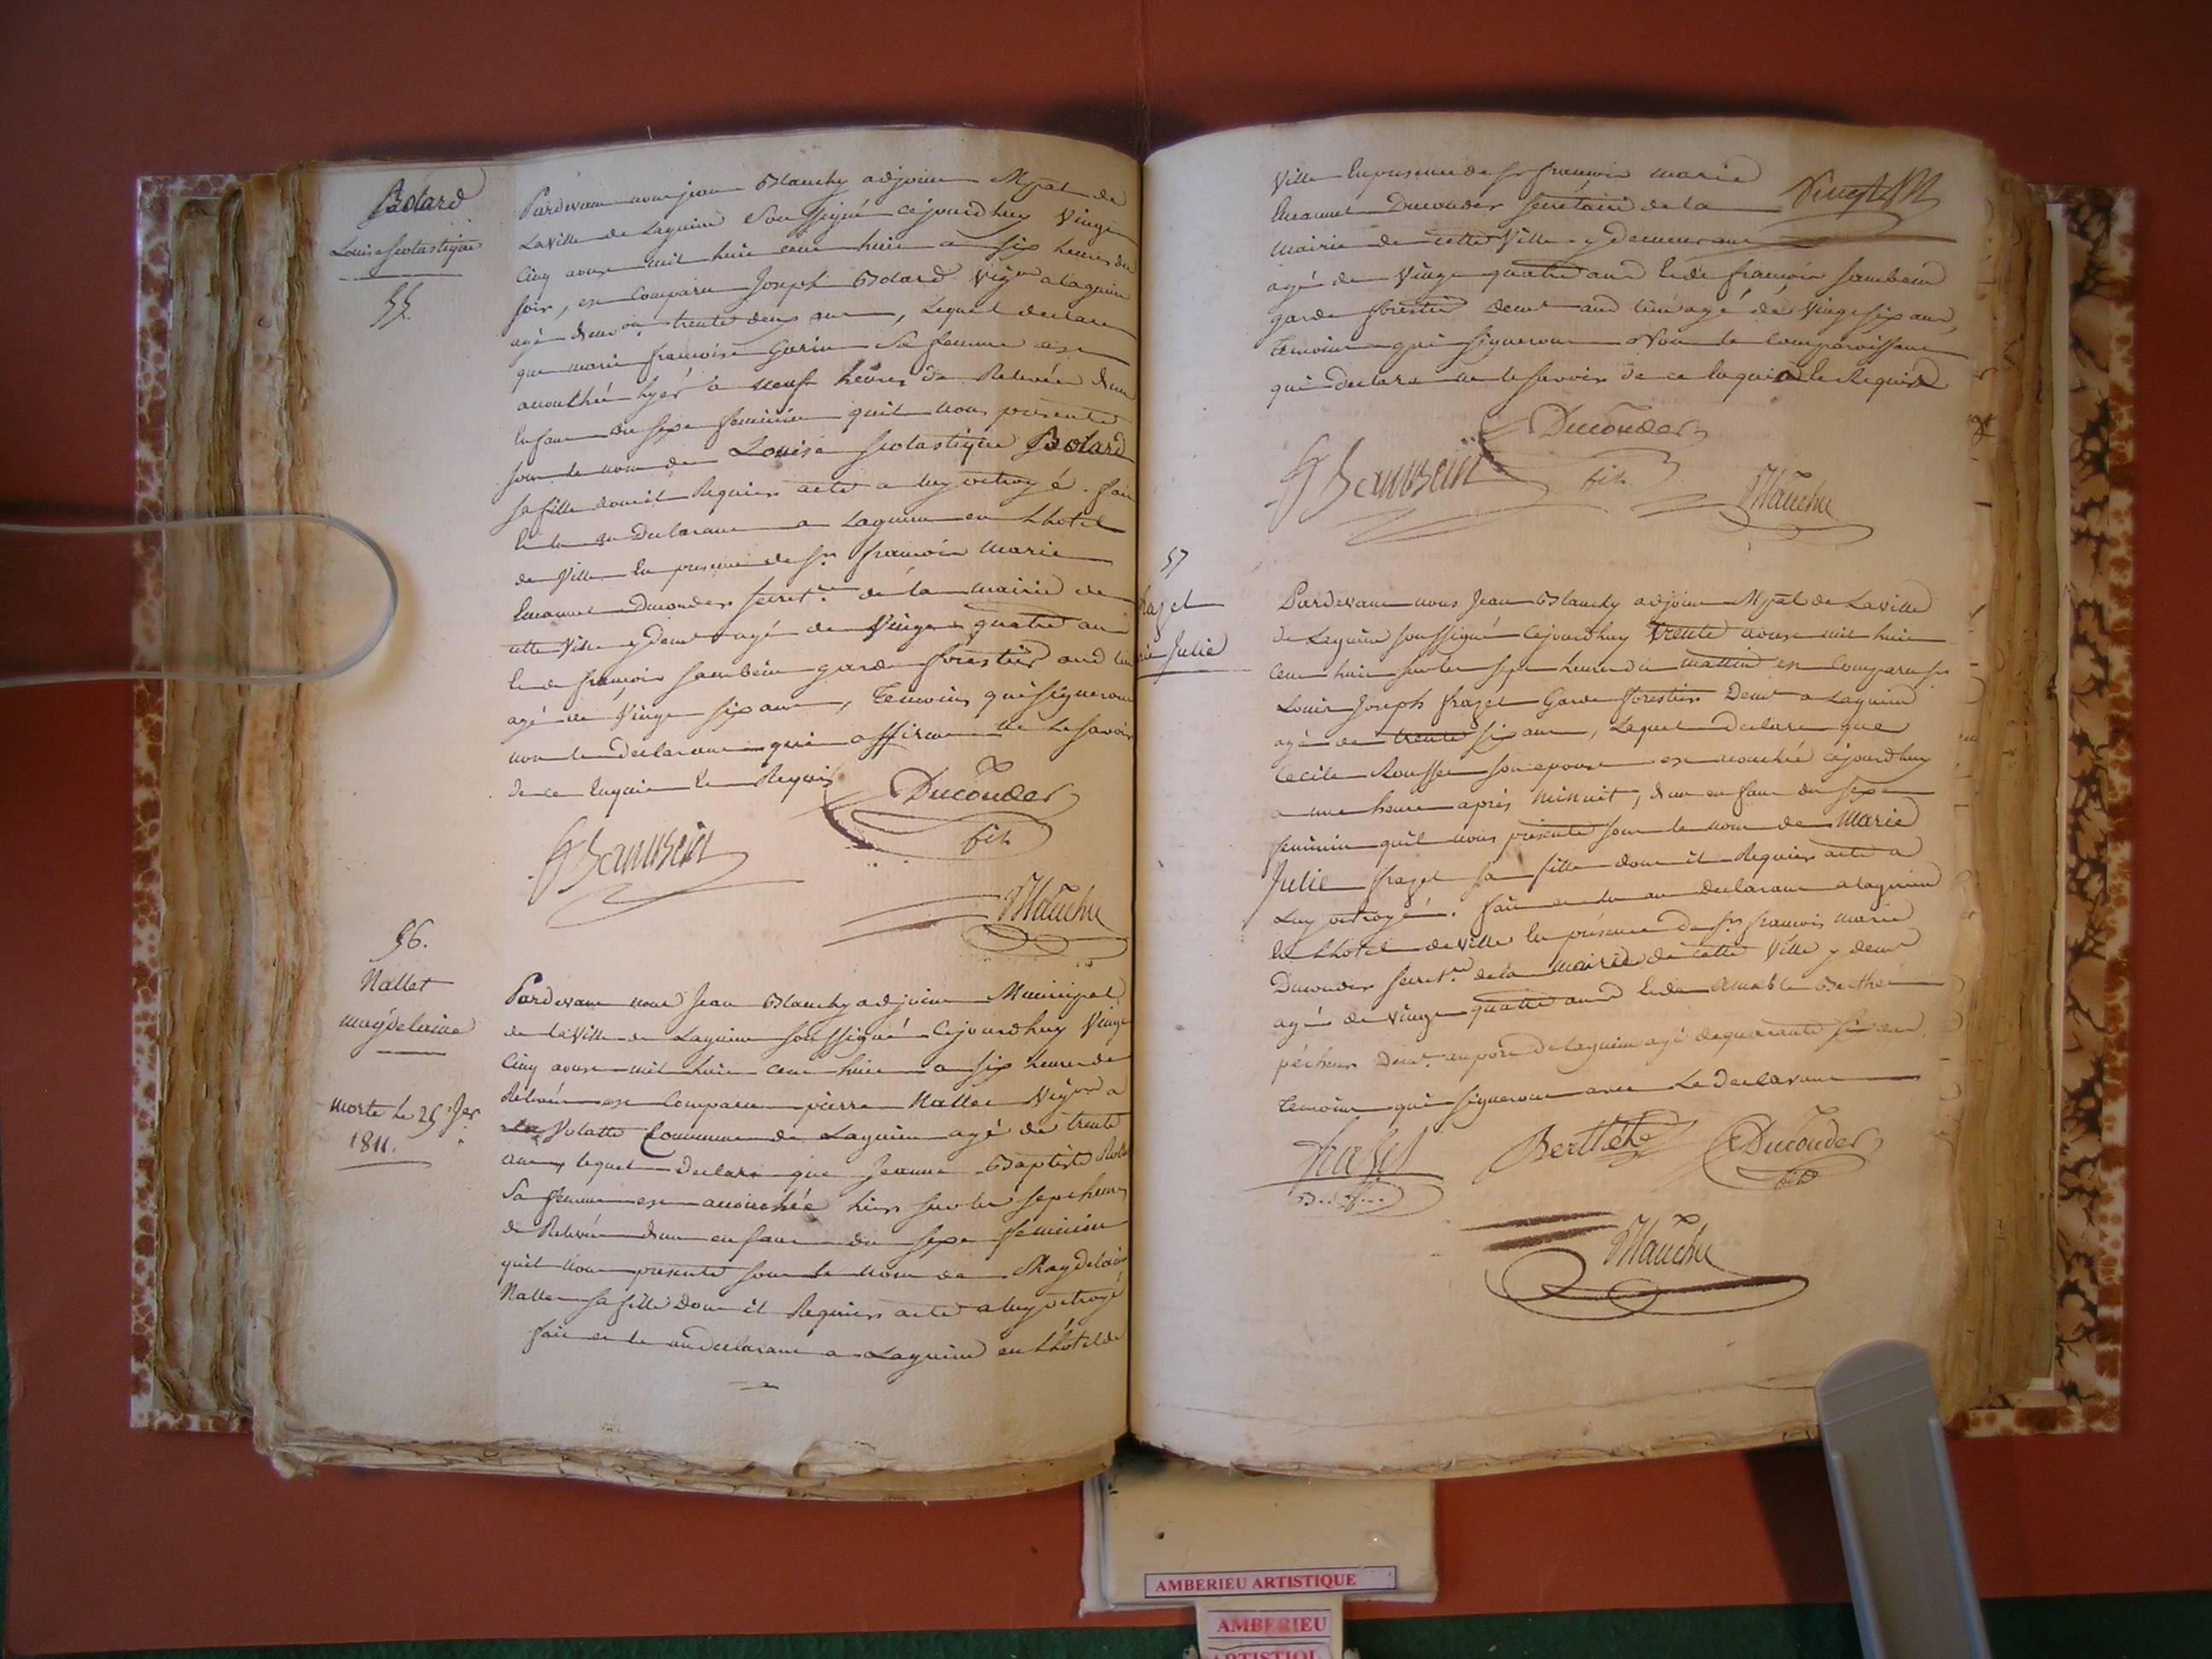 Bolard
Louise Scolastique
55.
Pardevant nous jean Blanchy adjoint Mpal de
La Ville de Lagnieu Soussigné cejourdhuy Vingt
Cinq aoust mil huit cent huit a six heures du
soir, est Comparu Joseph Bolard Vigon a Lagnieu
agé trente deux ans, Lequel declare
que marie françoise Garin Sa femme est
accouchée hyer à neuf heures de Relevée d'un
Enfant du sexe feminin quil nous presente
sous le nom de Louise Scolastique Bolard
sa fille dont il Requiert acte a luy octroyé. fait
et lu au Declarant a Lagnieu en Lhotel
de Ville En presence de Sr. françois Marie
Emanuel Ducouder Secret.re de la mairie de
cette Ville y demt agé de Vingt quatre ans
Et de françois Jambein garde forestier aud lieu
agé de Vingt six ans, Temoins qui signeront
non le declarant qui affirme ne le savoir
de ce Enquis Et Requis
Ducouder
fils
Blanchy
56.
Nallet
magdelaine
morte le 25
1811.
Pardevant nous Jean Blanchy adjoint Municipal
de la Ville de Lagnieu soussigné Cejourdhuy Vingt
Cinq aoust mil huit cent huit a six heures de
Relevée est Comparu pierre Nallet Vigon a
Commune de Lagnieu agé de trente
ans lequel Declare que Jeanne Baptiste
Sa femme est accouchée hier sur les sept heures
de Relevée d'un enfant du sexe feminin
quil nous presente sous le nom de Magdelaine
Nallet sa fille Dont il Requiert acte a luy octroyé
fait et lu au declarant a Lagnieu en Lhotel de
Ville En presence de Sr françois marie
Emanuel Ducouder Secrétaire de la
mairie de cette Ville y demeurant
agé de Vingt quatre ans Et de françois Jambein
garde forestier demt aud lieu agé de Vingt six ans,
Temoins qui signeront Non le Comparoissant
qui declare ne le savoir de ce Enquis et Requis
Ducouder
fils
Blanchy
57
Julie
Pardevant nous Jean Blanchy adjoint Mpal de La Ville
de Lagnieu soussigné Cejourdhuy trente aoust mil huit
Cent huit sur les sept heures du mattin est Comparu Sr
Louis Joseph frazet Garde forestier Demt a Lagnieu
agé de trente six ans, Lequel declare que
Cecile Rousset son epouse est accouchée cejourdhuy
a une heure après Minuit, d'un enfant du sexe
feminin quil nous presente sous le nom de Marie
Julie frazet sa fille dont il Requiert acte a
Luy octroyé. fait et lu au declarant a lagnieu
En Lhotel de Ville En présence de Sr. françois Marie
Ducouder Secret.re de la Mairie de cette Ville y demt
agé de Vingt quatre ans Et de Amable
pécheur Demt. au port de lagnieu agé de quarante six ans
temoins qui signeront avec Le Declarant
frazet
Ducouder
fils
Blanchy
AMBERIEU ARTISTIQUE
AMBERIEU